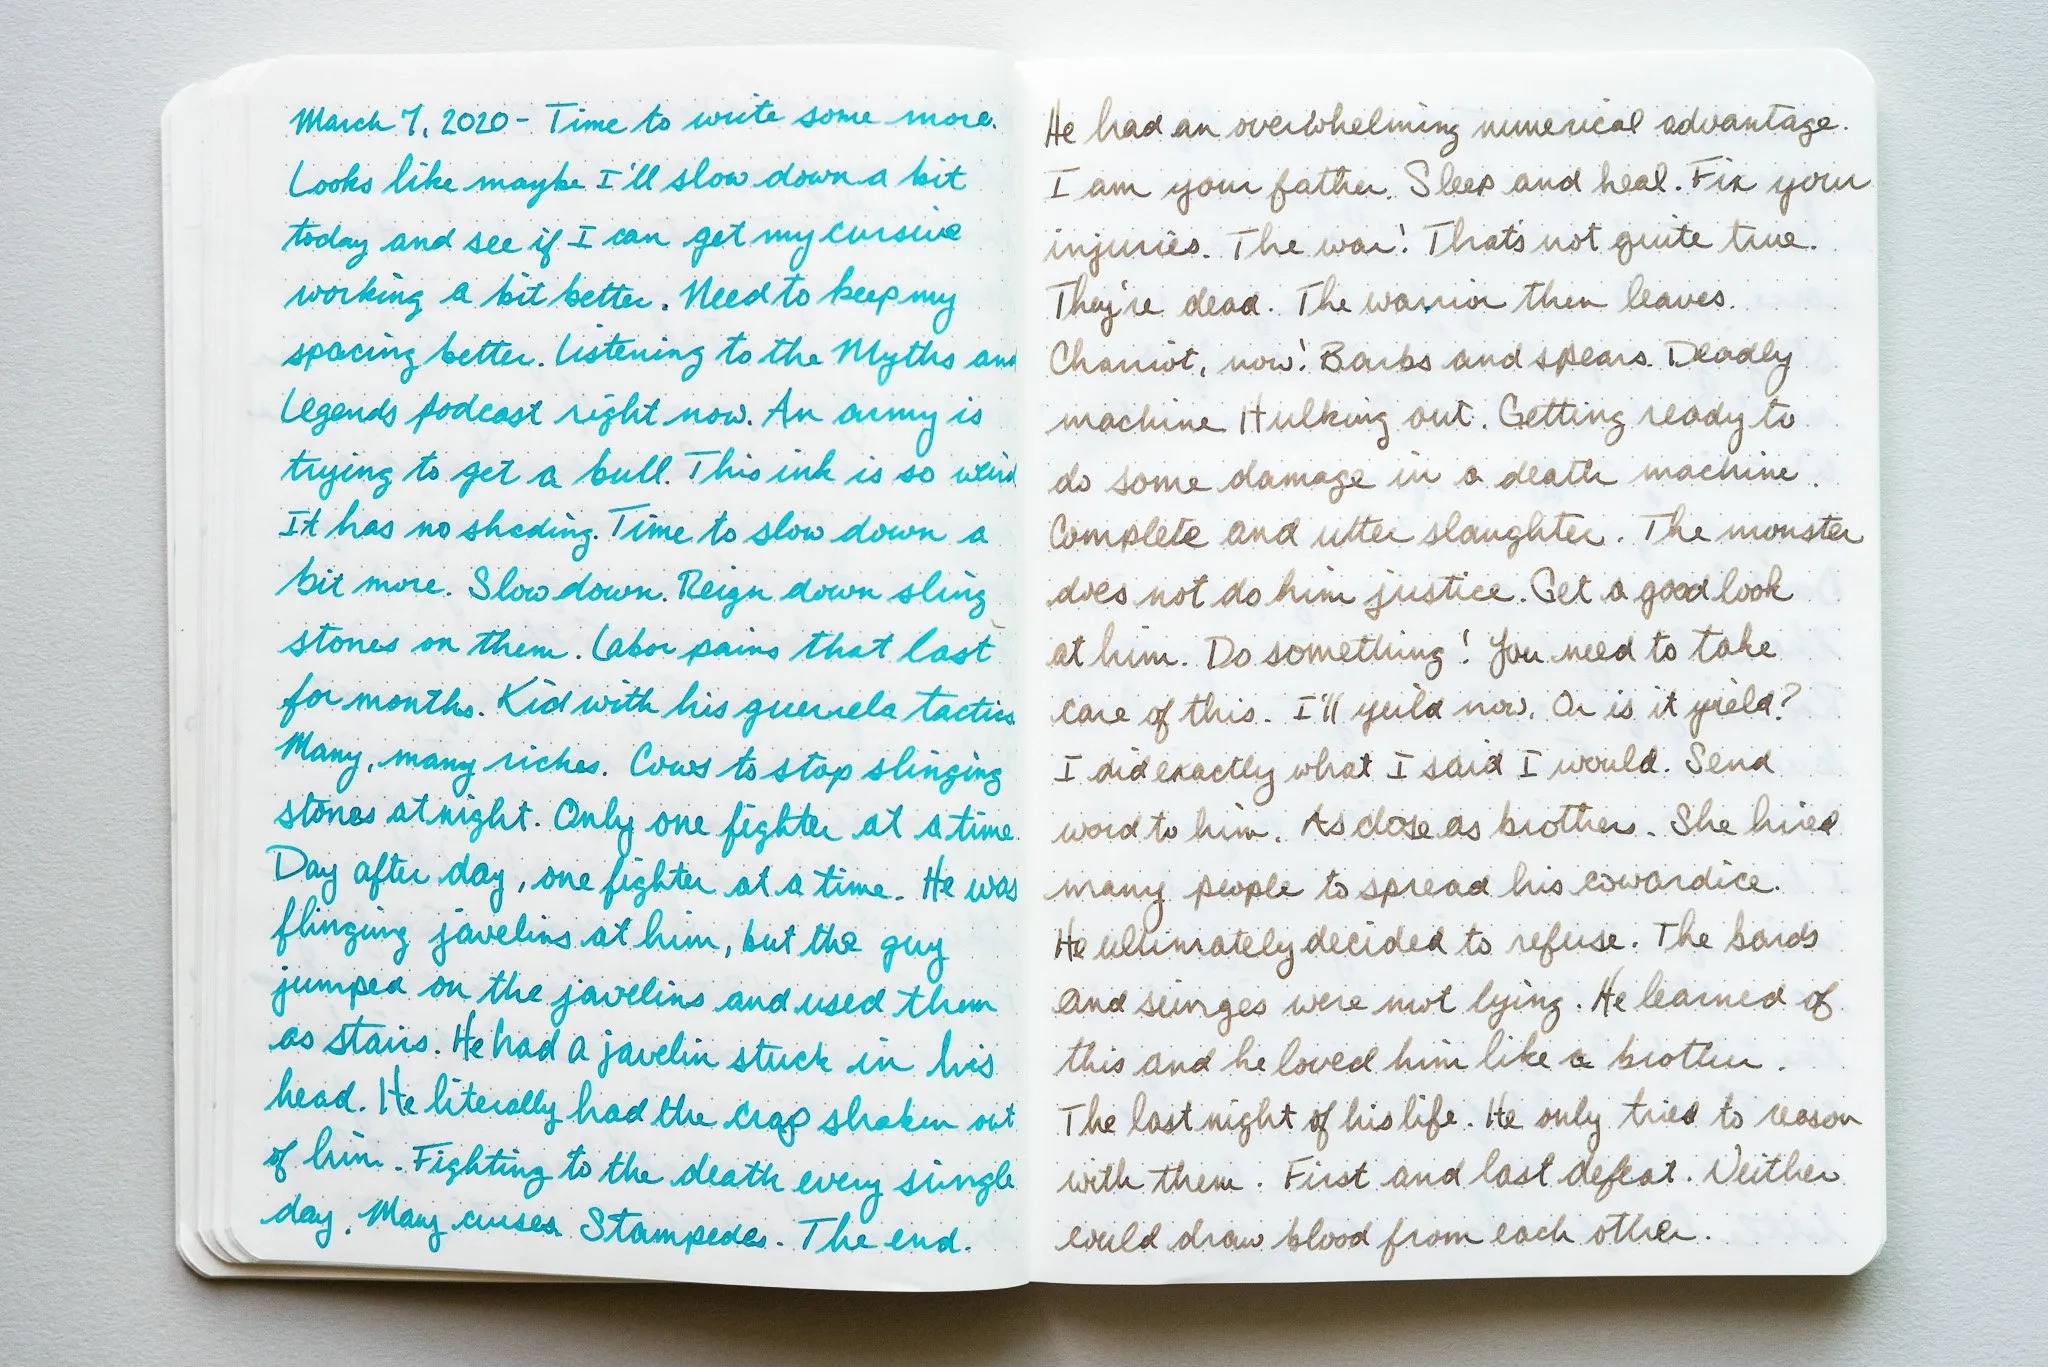 March 7, 2020 - Time to write some more.
Looks like maybe I'll slow down a bit
today and see if I can get my cursive
working a bit better. Need to keep my
spacing better. Listening to the Myths and
Legends podcast right now. An army is
trying to get a bull. This ink is so weird
It has no shading. Time to slow down a
bit more. Slow down. Reign down sling
stones on them. Labor pains that last
for months. Kid with his guerrela tactics
Many, many riches. Cows to stop slinging
stones at night. Only one fighter at a time
Day after day, one fighter at a time. He was
flinging javelins at him, but the guy
jumped on the javelins and used them
as stairs. He had a javelin stuck in his
head. He literally had the crap shaken out
of him. Fighting to the death every single
day. Many curses Stampedes. The end.
He had an overwhelming numerical advantage.
I am your father. Sleep and heal. Fix your
injuries. The war! That's not quite true.
They're dead. The warrior then leaves.
Chariot, now! Barbs and spears. Deadly
machine Hulking out. Getting ready to
do some damage in a death machine.
Complete and utter slaughter. The monster
does not do him justice. Get a good look
at him. Do something! You need to take
care of this. I'll yeild now. Or is it yield?
I did exactly what I said I would. Send
word to him. As close as brothers. She hired
many people to spread his cowardice.
He ultimately decided to refuse. The bards
and were not lying. He learned of
this and he loved him like a brother.
The last night of his life. He only tried to reason
with them. First and last defeat. Neither
could draw blood from each other.